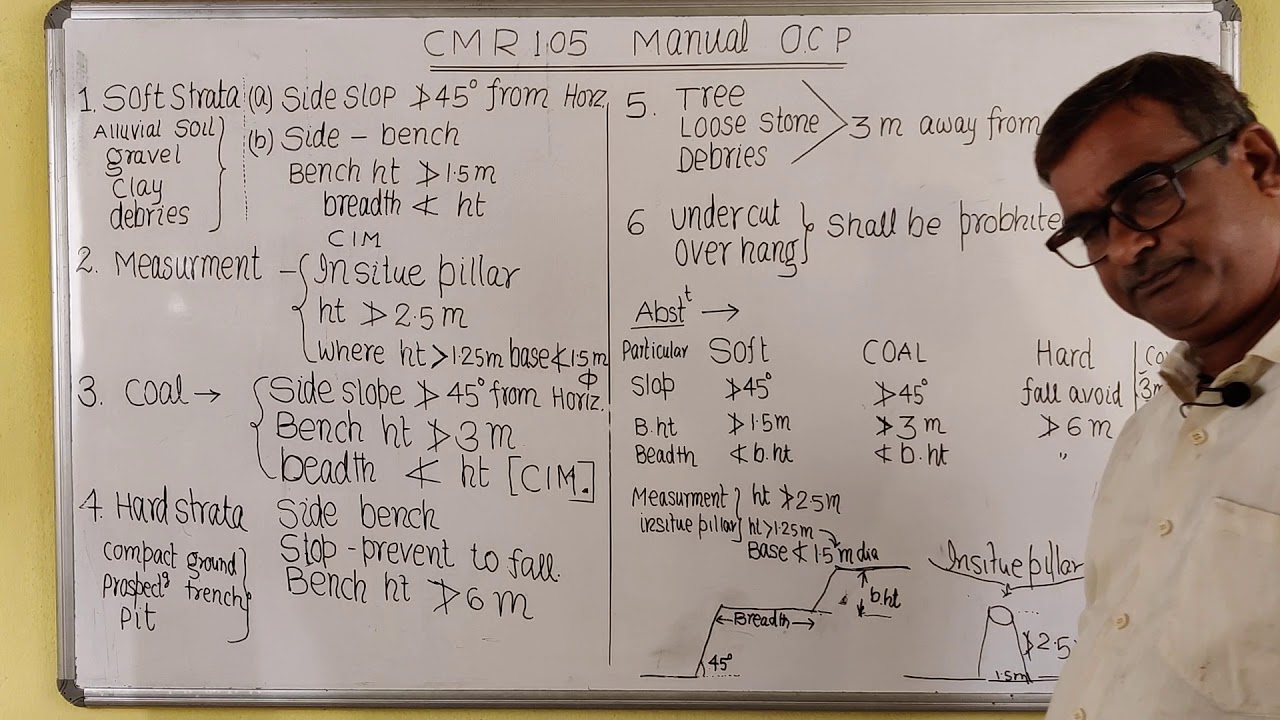 CMR 105 Manual O.C P
1. Soft Strata (a) Side Slop ≯ 45° from Horiz.
Alluvial Soil
gravel
Clay
debries
(b) Side - bench
Bench ht ≯ 1.5m
breadth ≮ ht
CIM
2. Measurment - Insitue pillar
ht ≯ 2.5m
Where ht > 1.25m base ≮ 1.5m
Φ
3. Coal → Side slope ≯ 45° from Horiz.
Bench ht ≯ 3m
beadth ≮ ht [CIM.]
4. Hard strata Side bench
Compact ground
Prospedg trench
Pit
Slop - prevent to fall.
Bench ht ≯ 6m
5. Tree
Loose Stone
Debries
3 m away from
6 Undercut
Over hang
Shall be probhite
Abstt →
Particular Soft COAL Hard
Slop ≯45° ≯45° fall avoid 3m
B.ht ≯1.5m ≯3m ≯6m
Beadth ≮b.ht ≮b.ht "
Measurment ht ≯2.5m
insitue pillar ht >1.25m
Base ≮ 1.5m dia
Breadth
b.ht
45°
Insitue pillar
≯2.5
1.5m